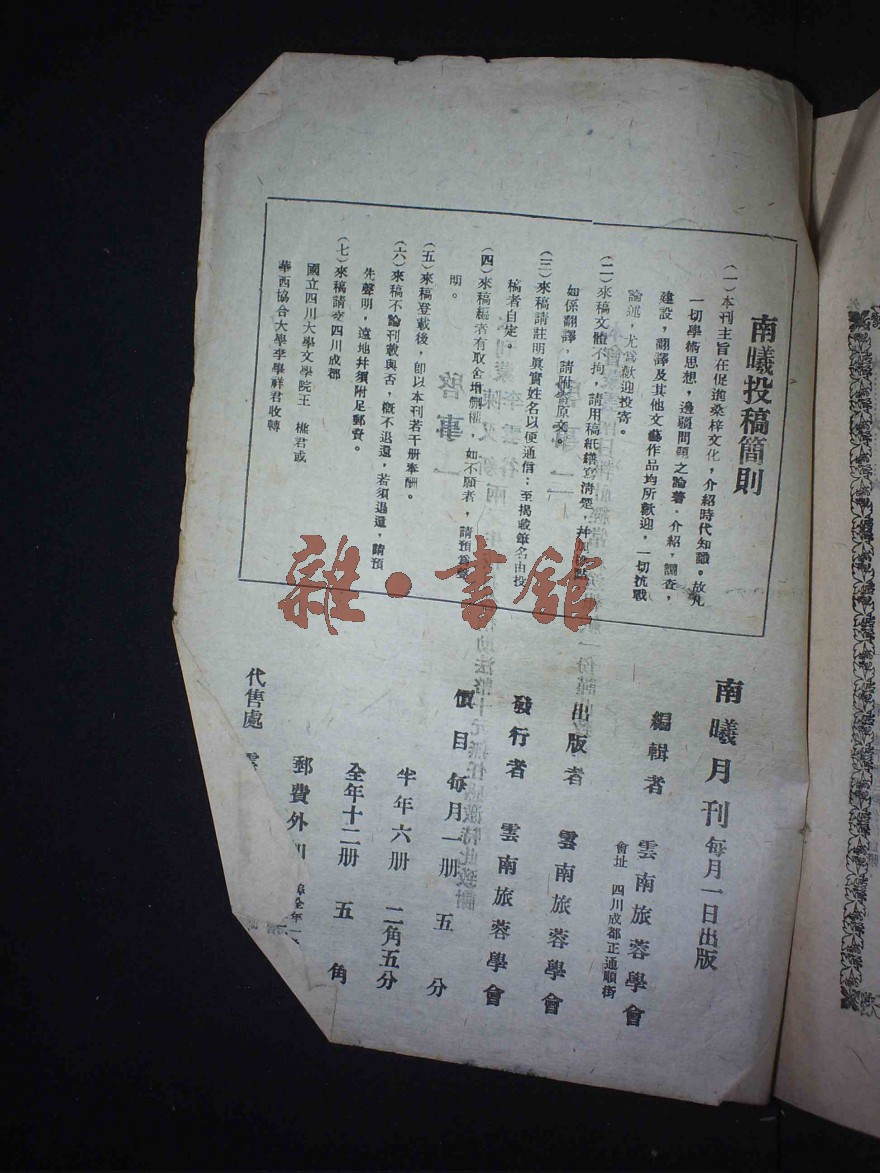 南曦投稿簡則
(一)本刊主旨在促進桑梓文化,介紹時代知識。故凡
一切學術思想,邊疆問題之論著,介紹,調查,
建設,翻譯及其他文藝作品均所歡迎,一切抗戰
論述,尤爲歡迎投寄。
(二)來稿文體不拘,請用稿紙繕寫清楚,幷加
如係翻譯,請附 原文。
(三)來稿請註明眞實姓名以便通信;至揭載筆名由投
稿者自定。
(四)來稿編者有取舍增刪權,如不願者,請預爲
明。
(五)來稿登載後,卽以本刊若干册奉酬。
(六)來稿不論刊載與否,概不退還,若須退還,請預
先聲明,遠地幷須附足郵費。
(七)來稿請交四川成都
國立四川大學文學院王 樵君或
華西協合大學李畢祥君收轉
南曦月刊 每月一日出版
編輯者 雲南旅蓉學會
會址 四川成都正通順街
出版者 雲南旅蓉學會
發行者 雲南旅蓉學會
價目 每月一册 五分
半年六册 二角五分
全年十二册 五角
郵費外
代售處
啓事一
啓事二
雜·書舘